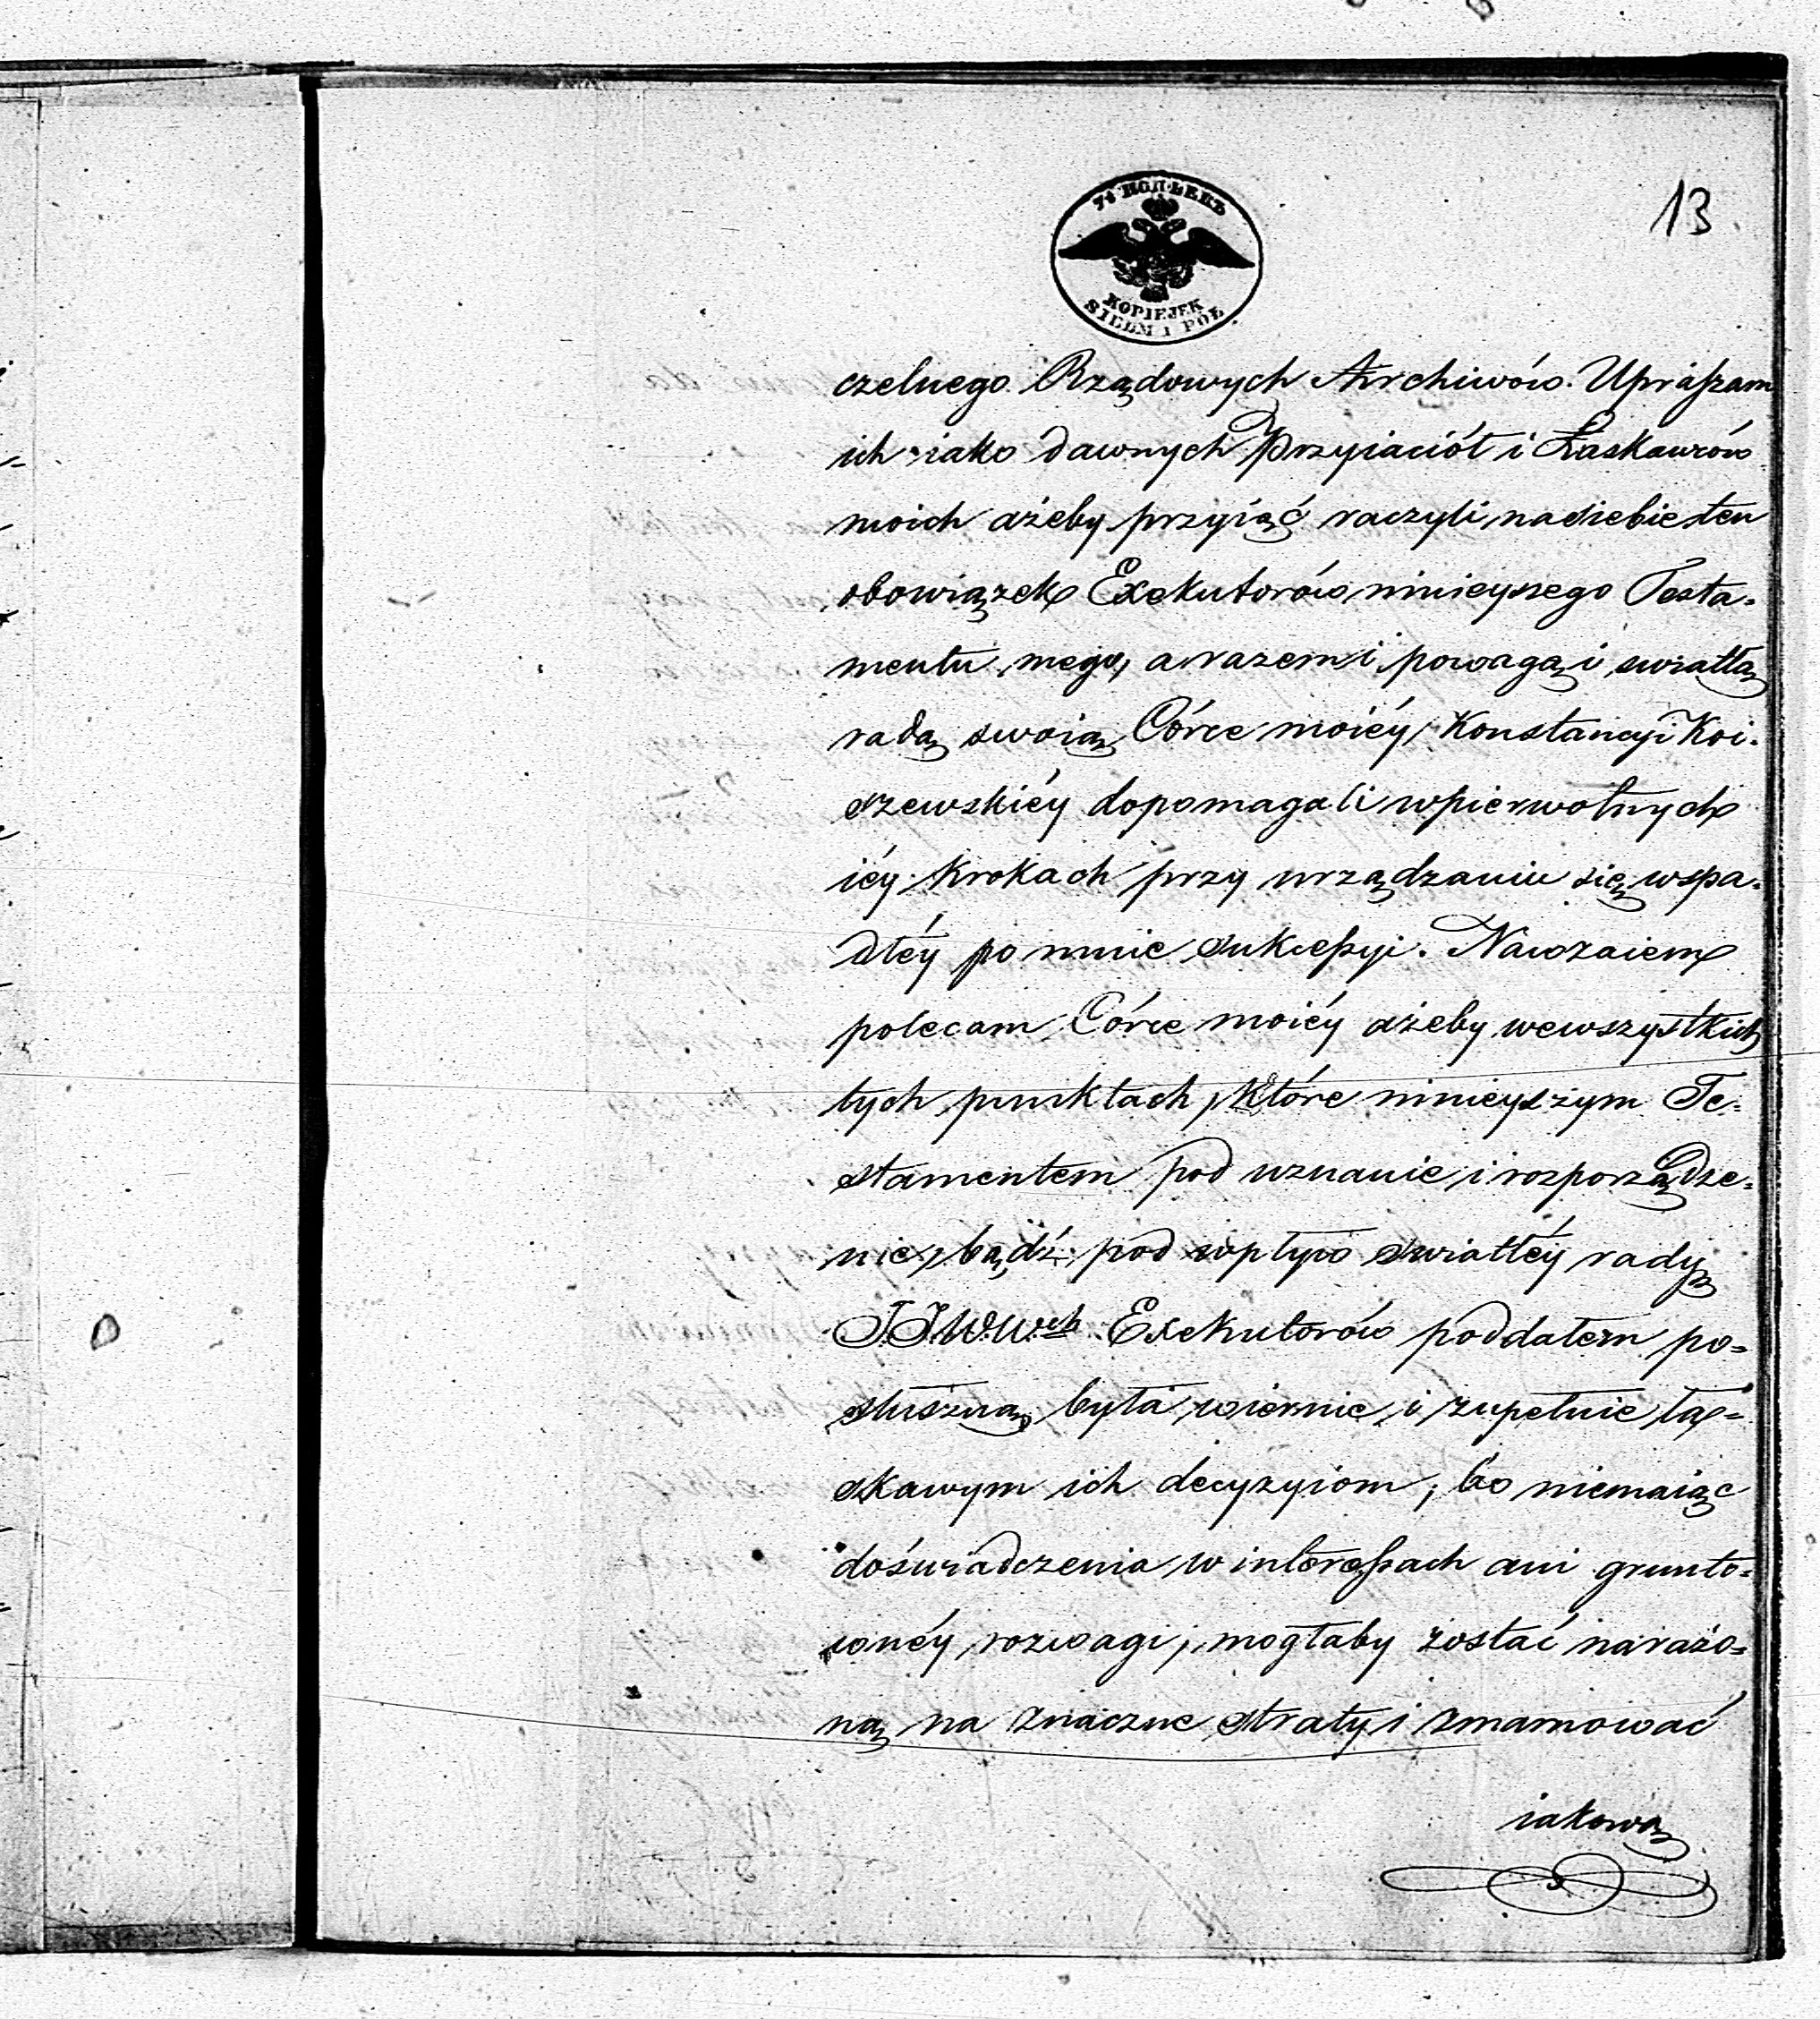 13
7½ КОПѢЕКЪ
KOPIEJEK
SIEDM i PÓŁ
czelnego Rządowych Archiwów. Upraſzam
ich iako dawnych Przyiaciół i Łaskawców
moich ażeby przyiąć raczyli na siebie ten
obowiązek Exekutorów ninieyszego Testa-
mentu mego, a razem i powagą i swiatłą
radą swoią Córce moiéy Konstancyi Koi-
szewskiéy dopomagali w pierwotnych
iéy krokach przy urządzaniu się w spa-
dłéy po mnie sukceſsyi. Nawzaiem
polecam Córce moiéy ażeby we wszystkich
tych punktach, które ninieyszym Te-
stamentem pod uznanie i rozporządze-
nie, bądź pod wpływ swiatłéy rady
J.J.W.W.ch Exekutorów poddałem po-
słuszną była wiernie i zupełnie ła-
skawym ich decyzyiom, bo niemaiąc
doświadczenia w intereſsach ani grunto-
wnéy rozwagi, mogłaby zostać narażo-
ną na znaczne straty i zmarnować
iakową